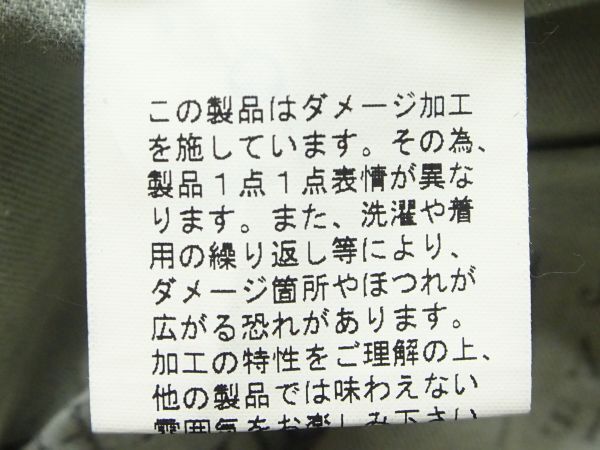 この製品はダメージ加工
を施しています。その為、
製品１点１点表情が異な
ります。また、洗濯や着
用の繰り返し等により、
ダメージ箇所やほつれが
広がる恐れがあります。
加工の特性をご理解の上、
他の製品では味わえない
雰囲気をお楽しみ下さい